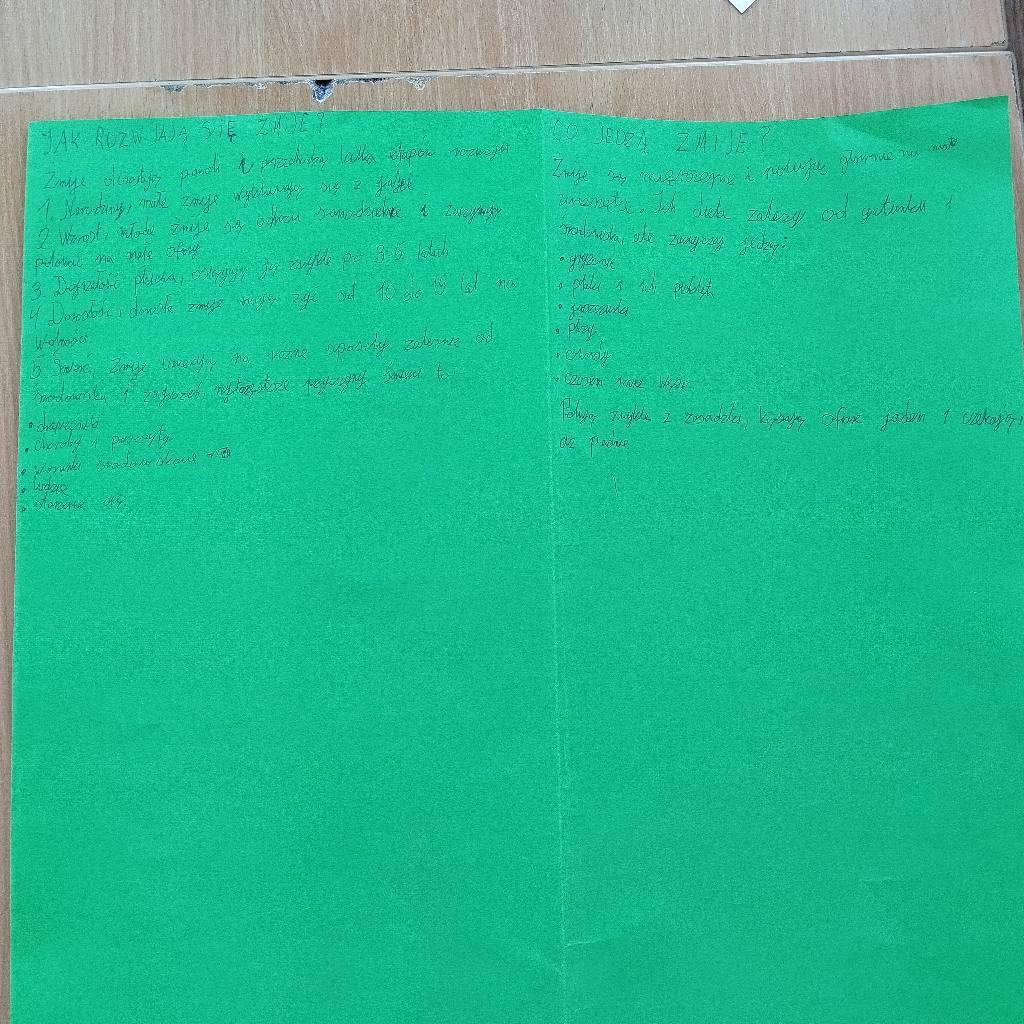 JAK ROZWJAJĄ SIĘ ŻMIJE?
Żmije dorastają powoli i przechodzą kilka etapów rozwoju
1. Narodziny, małe żmije wykluwają się z jajek
2 Wzrost, młode żmije są od razu samodzielne i zaczynają
polować na małe ofiary
3 Dojrzałość płciowa, osiągają ją zwykle po 3-5 latach
4 Dorosłość, dorosłe żmije mogą żyć od 10 do 15 lat na
wolności
5 Śmierć, żmije umierają na różne sposoby zależnie od
środowiska i zagrożeń, najczęstsze przyczyny śmierci to
• drapieżniki
• choroby i pasożyty
• warunki środowiskowe
• ludzie
• starzenie się
CO JEDZĄ ŻMIJE?
Żmije są mięsożerne i polują głównie na małe
zwierzęta. Ich dieta zależy od gatunku i
środowiska, ale zazwyczaj jedzą:
• gryzonie
• ptaki i ich pisklęta
• jaszczurki
• płazy
• owady
• czasem inne węże
Polują zwykle z zasadzki, kąsają ofiarę jadem i czekają,
aż padnie